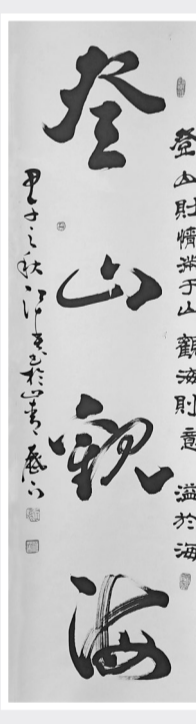 登山則情滿于山觀海則意溢於海
登山觀海
甲子之秋